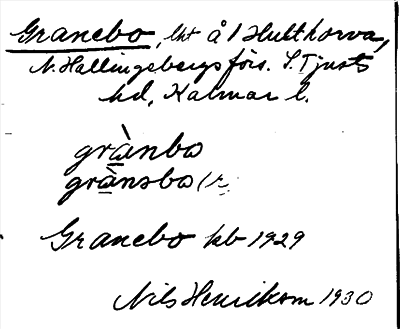 Granebo, lht å 1 Hulthorva,
N. Hallingebergs förs. S. Tjusts
hd, Kalmar l.
grànbo
grànsbo (r
Granebo kb 1929
Nils Henrikson 1930